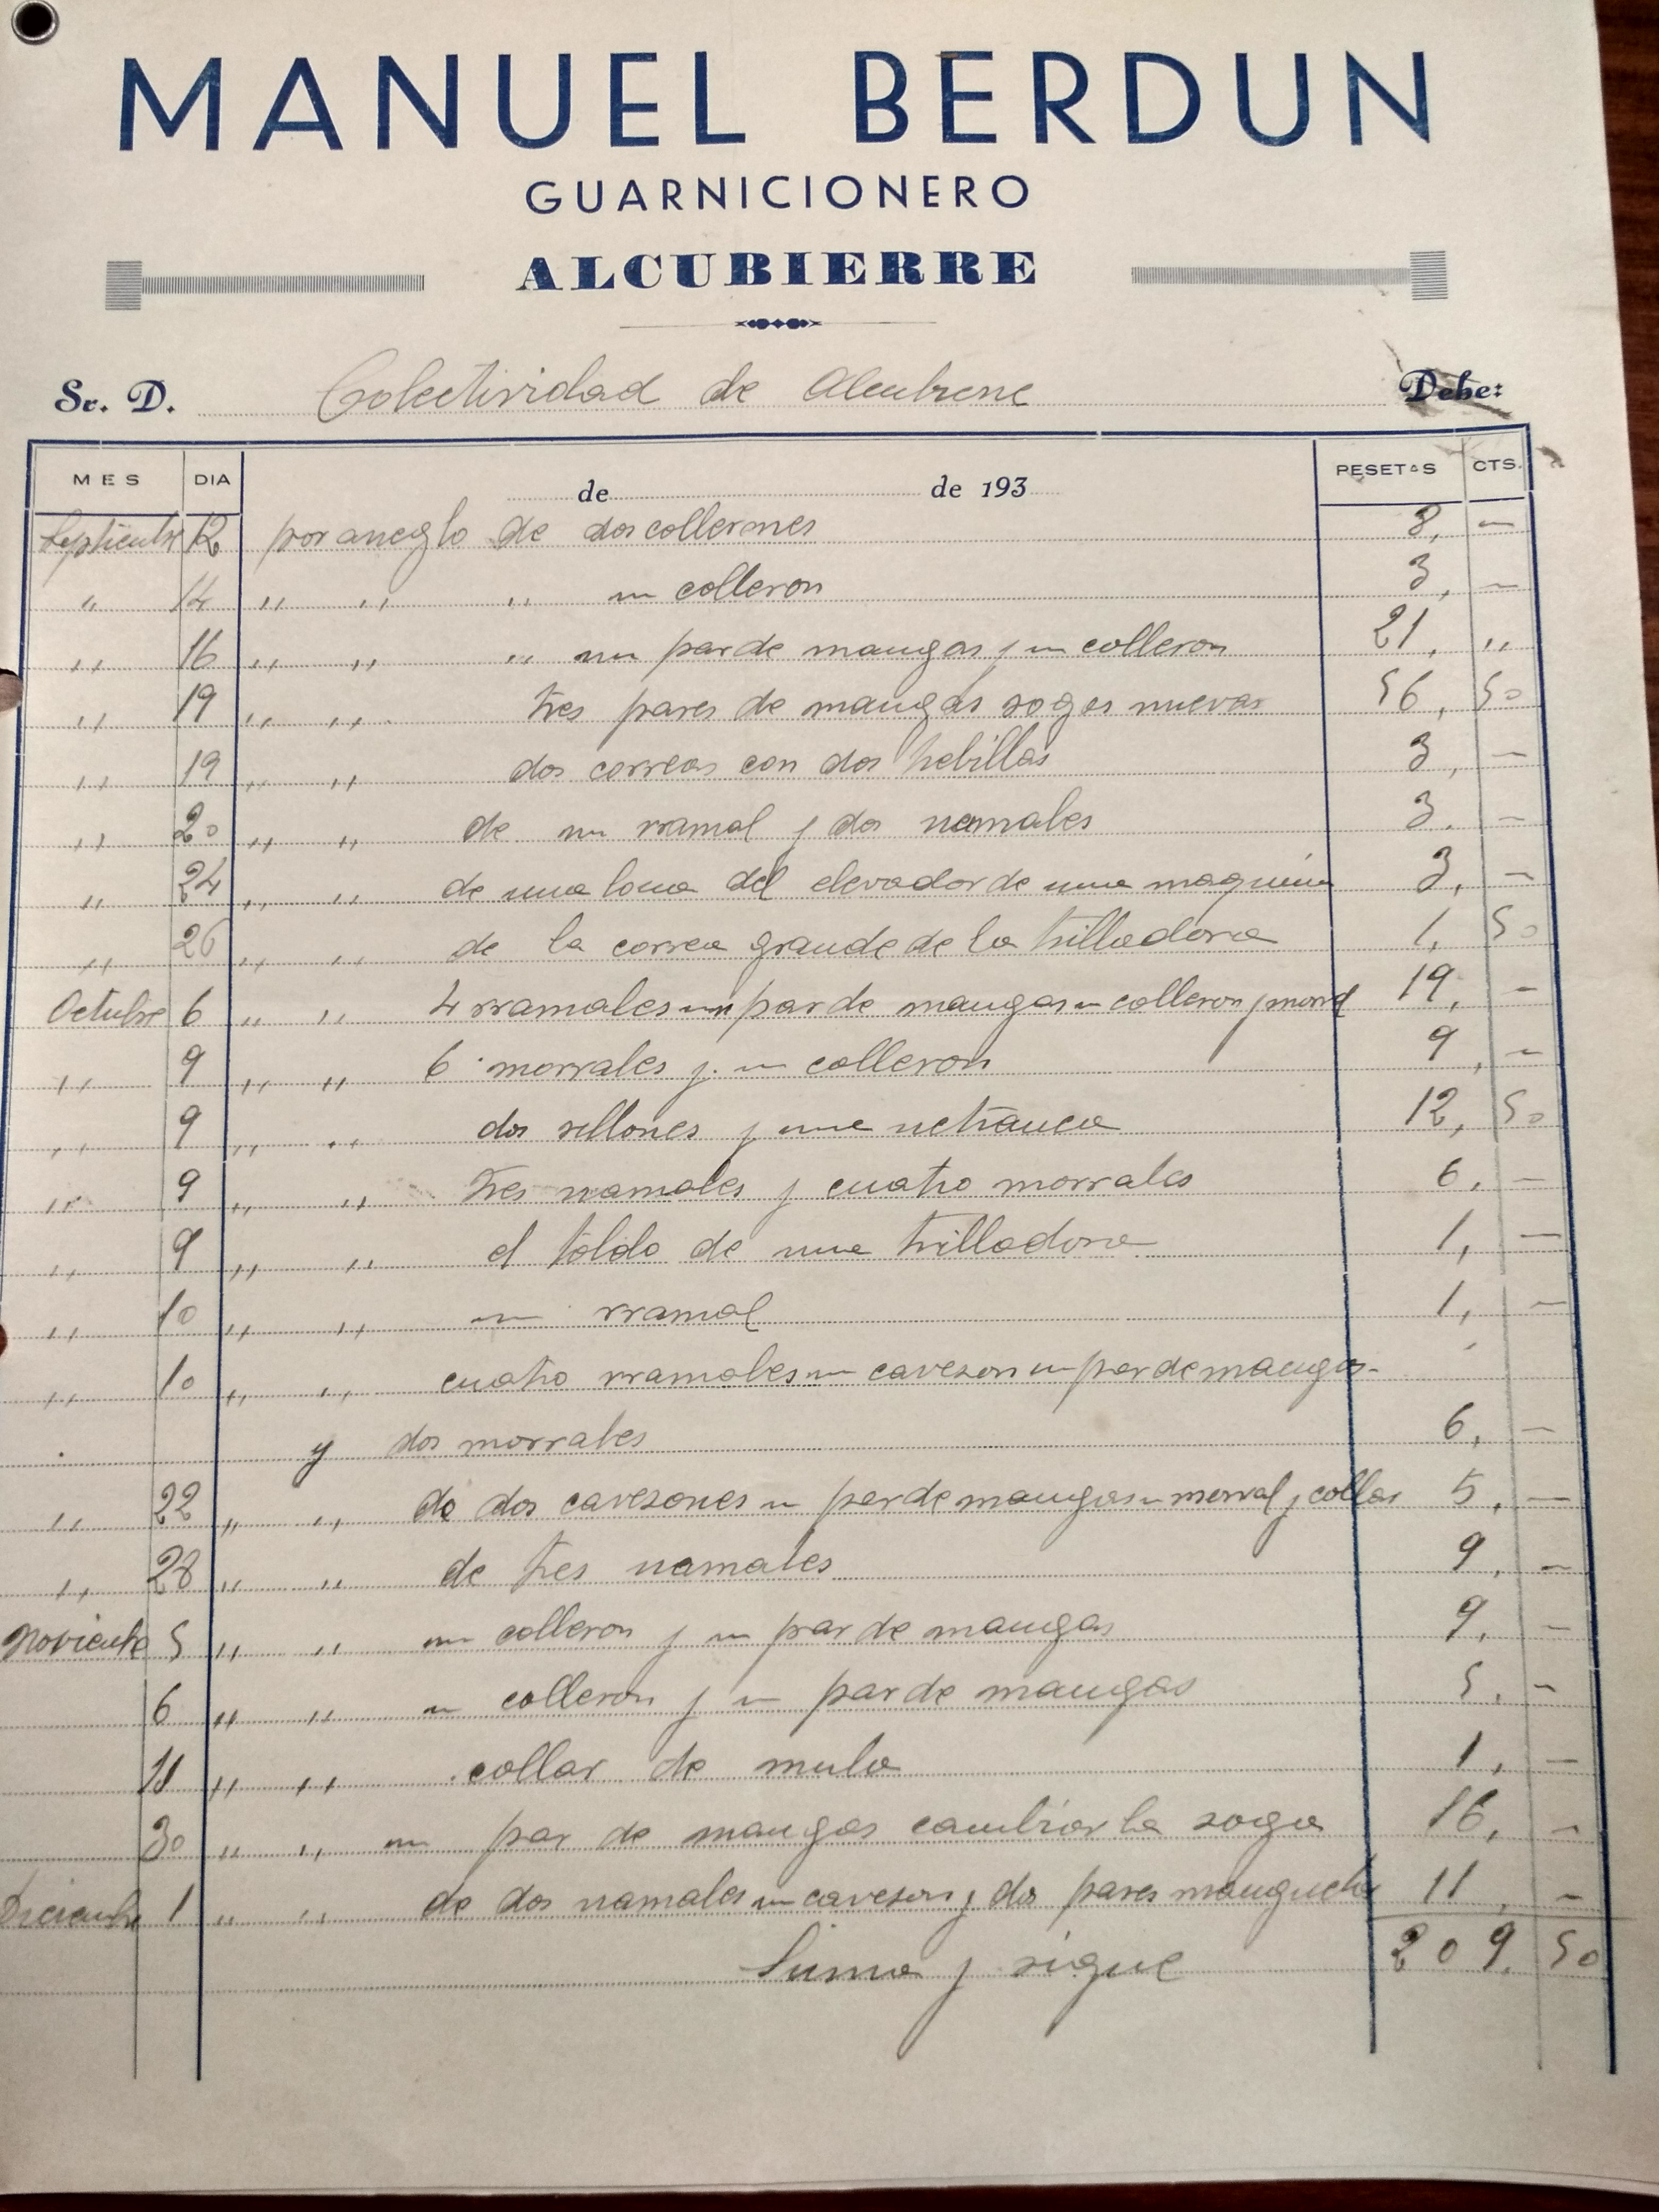 MANUEL BERDUN
GUARNICIONERO
ALCUBIERRE
Sr. D. Colectividad de Alcubierre Debe:
MES DIA de de 193 PESETAS CTS.
Septiembre 12 por arreglo de dos collerones 8, —
" 14 " " " un colleron 3, —
" 16 " " " un par de mangas y un colleron 21, "
" 19 " " tres pares de mangas sogas nuevas 56, 50
" 19 " " dos correas con dos hebillas 3, —
" 20 " " de un rramal y dos rramales 3, —
" 24 " " de una lona del elevador de una maquina 3, —
" 26 " " de la correa grande de la trilladora 1, 50
Octubre 6 " " 4 rramales un par de mangas un colleron y morral 19, —
" 9 " " 6 morrales y un colleron 9, —
" 9 " " dos sillones y una retranca 12, 50
" 9 " " tres rramales y cuatro morrales 6, —
" 9 " " el toldo de una trilladora 1, —
" 10 " " un rramal 1, —
" 10 " " cuatro rramales un caveson un par de mangas
y dos morrales 6, —
" 22 " " de dos cavesones un par de mangas un morral y collar 5, —
" 28 " " de tres rramales 9, —
Noviembre 5 " " un colleron y un par de mangas 9, —
6 " " un colleron y un par de mangas 5, —
11 " " collar de mula 1, —
30 " " un par de mangas cambiar la soga 16, —
Diciembre 1 " " de dos rramales un caveson y dos pares manguetas 11, —
Suma y sigue 209, 50